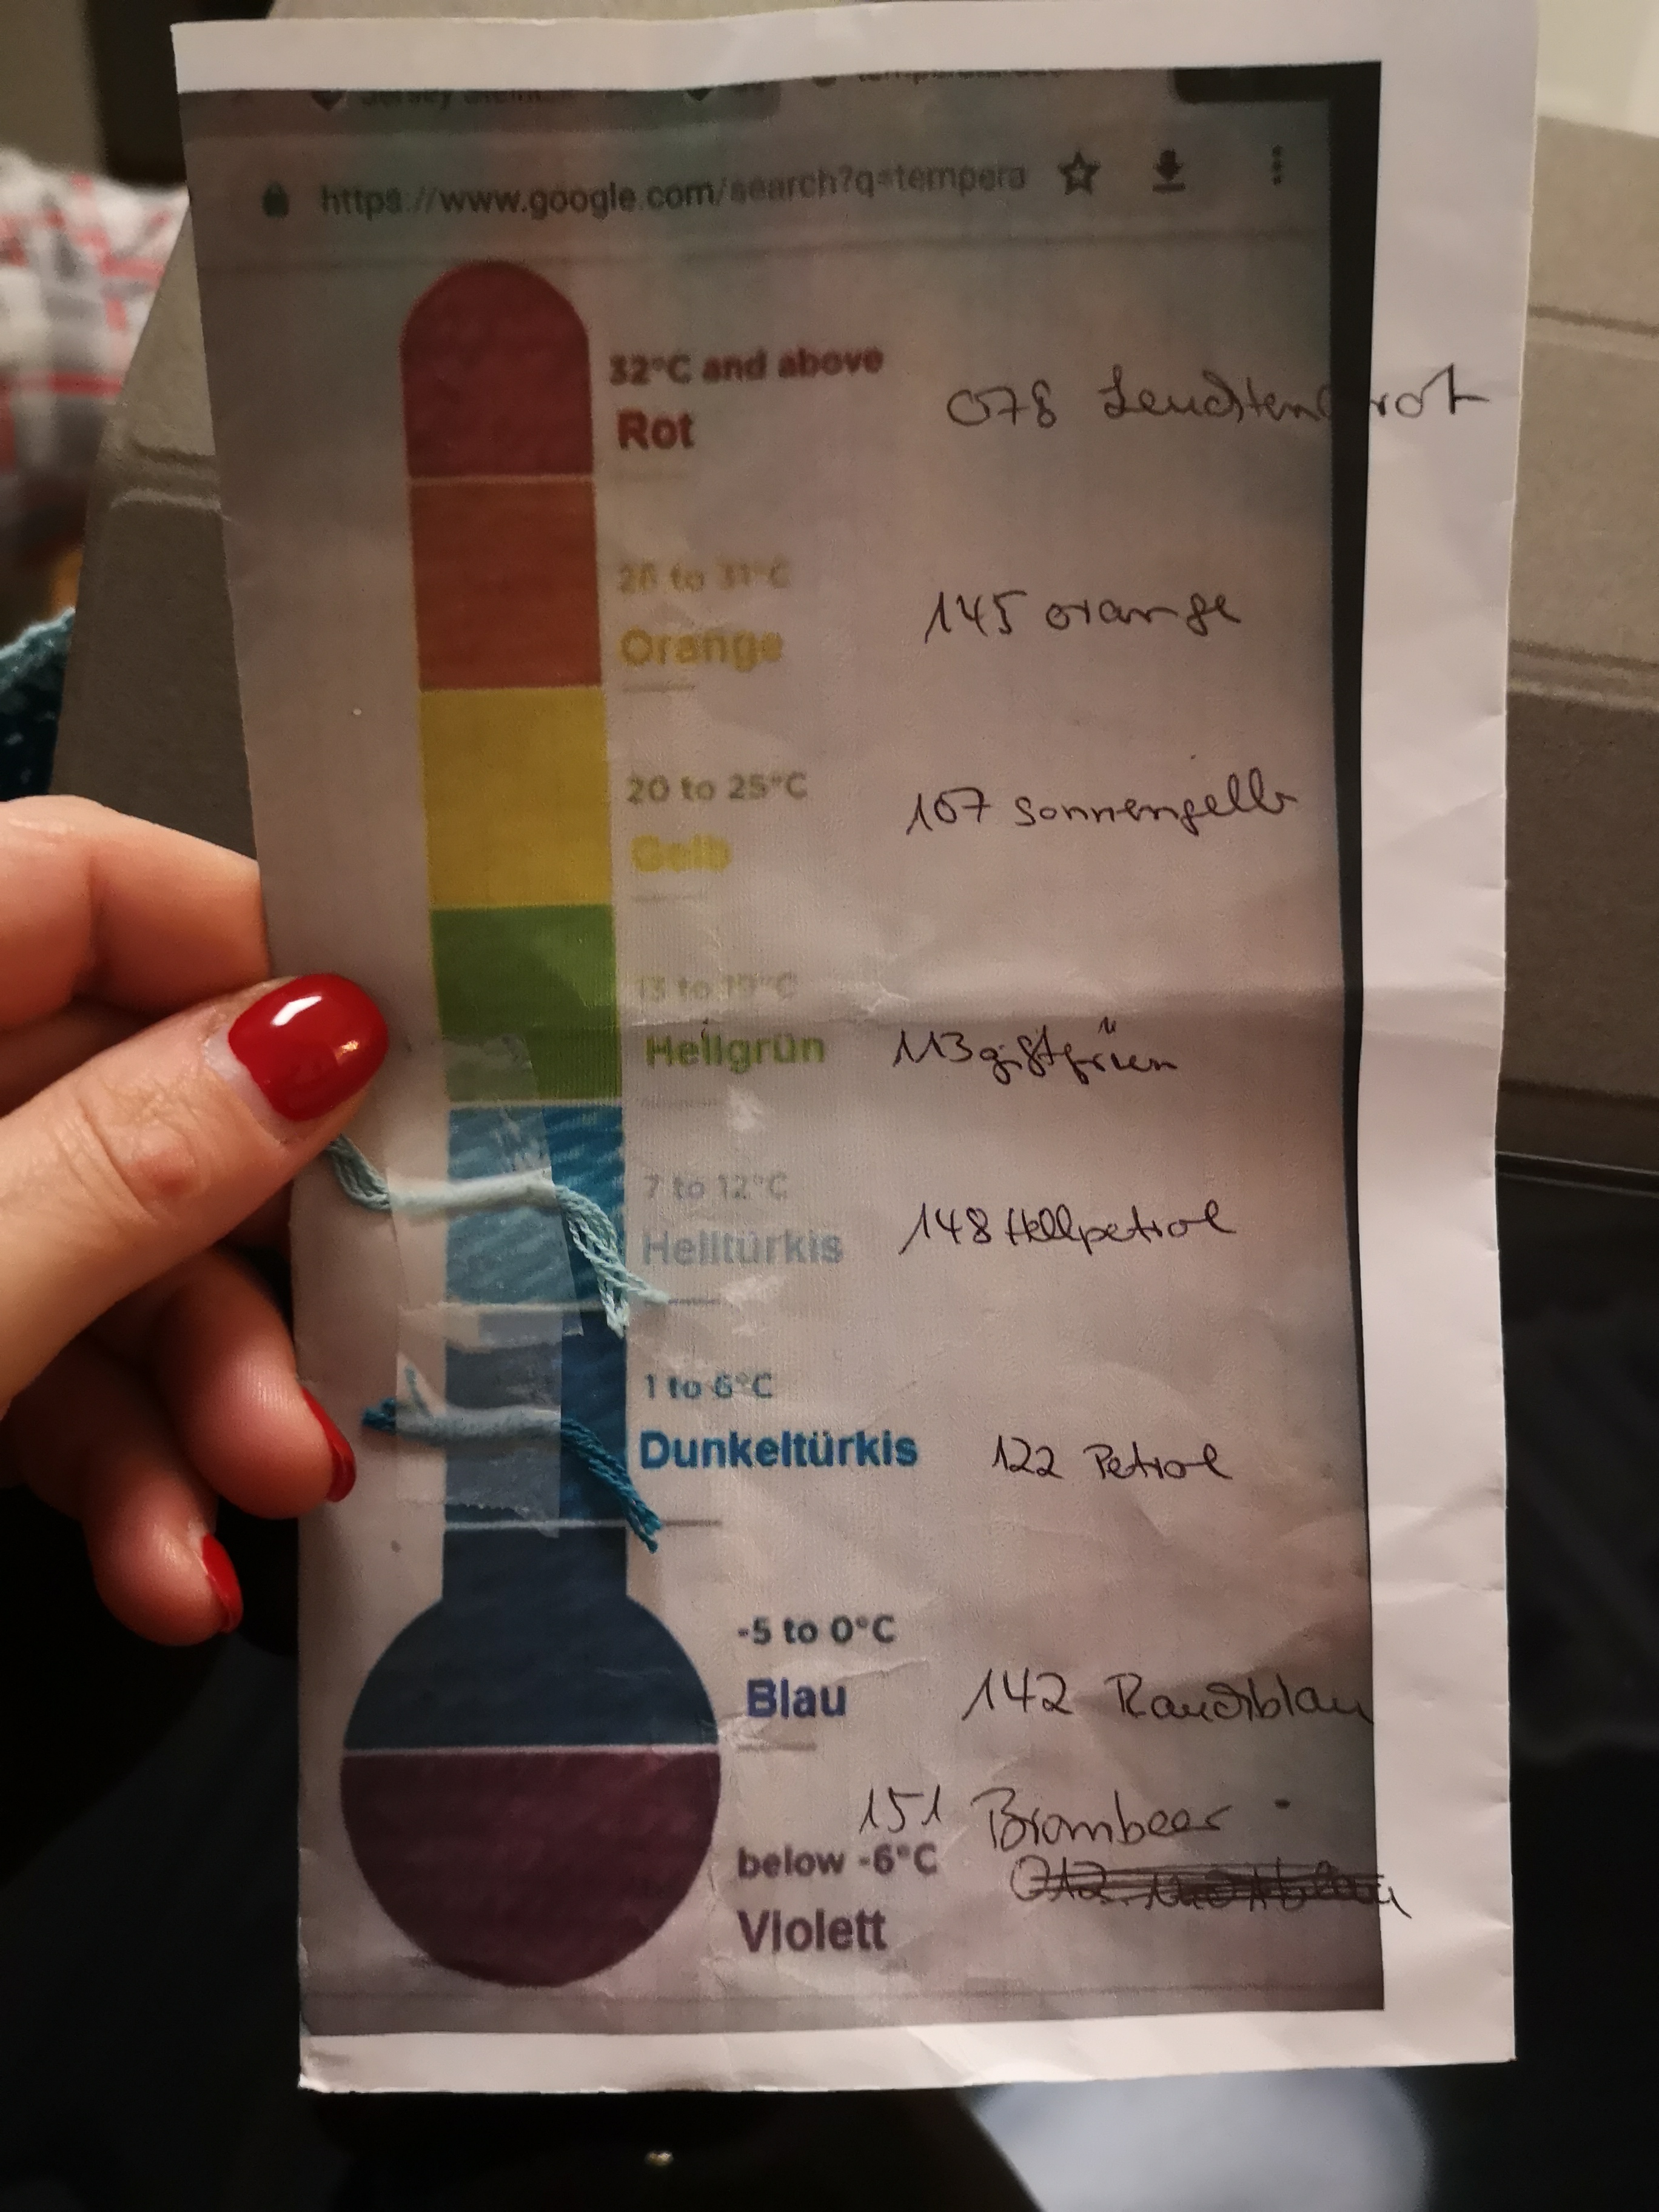 https://www.google.com/search?q=tempera
32°C and above
Rot
078 Leuchtendrot
26 to 31°C
Orange
145 orange
20 to 25°C
Gelb
107 sonnengelb
13 to 19°C
Hellgrün
113 giftgrün
7 to 12°C
Helltürkis
148 Hellpetrol
1 to 6°C
Dunkeltürkis
122 Petrol
-5 to 0°C
Blau
142 Rauchblau
151 Brombeer
below -6°C
Violett